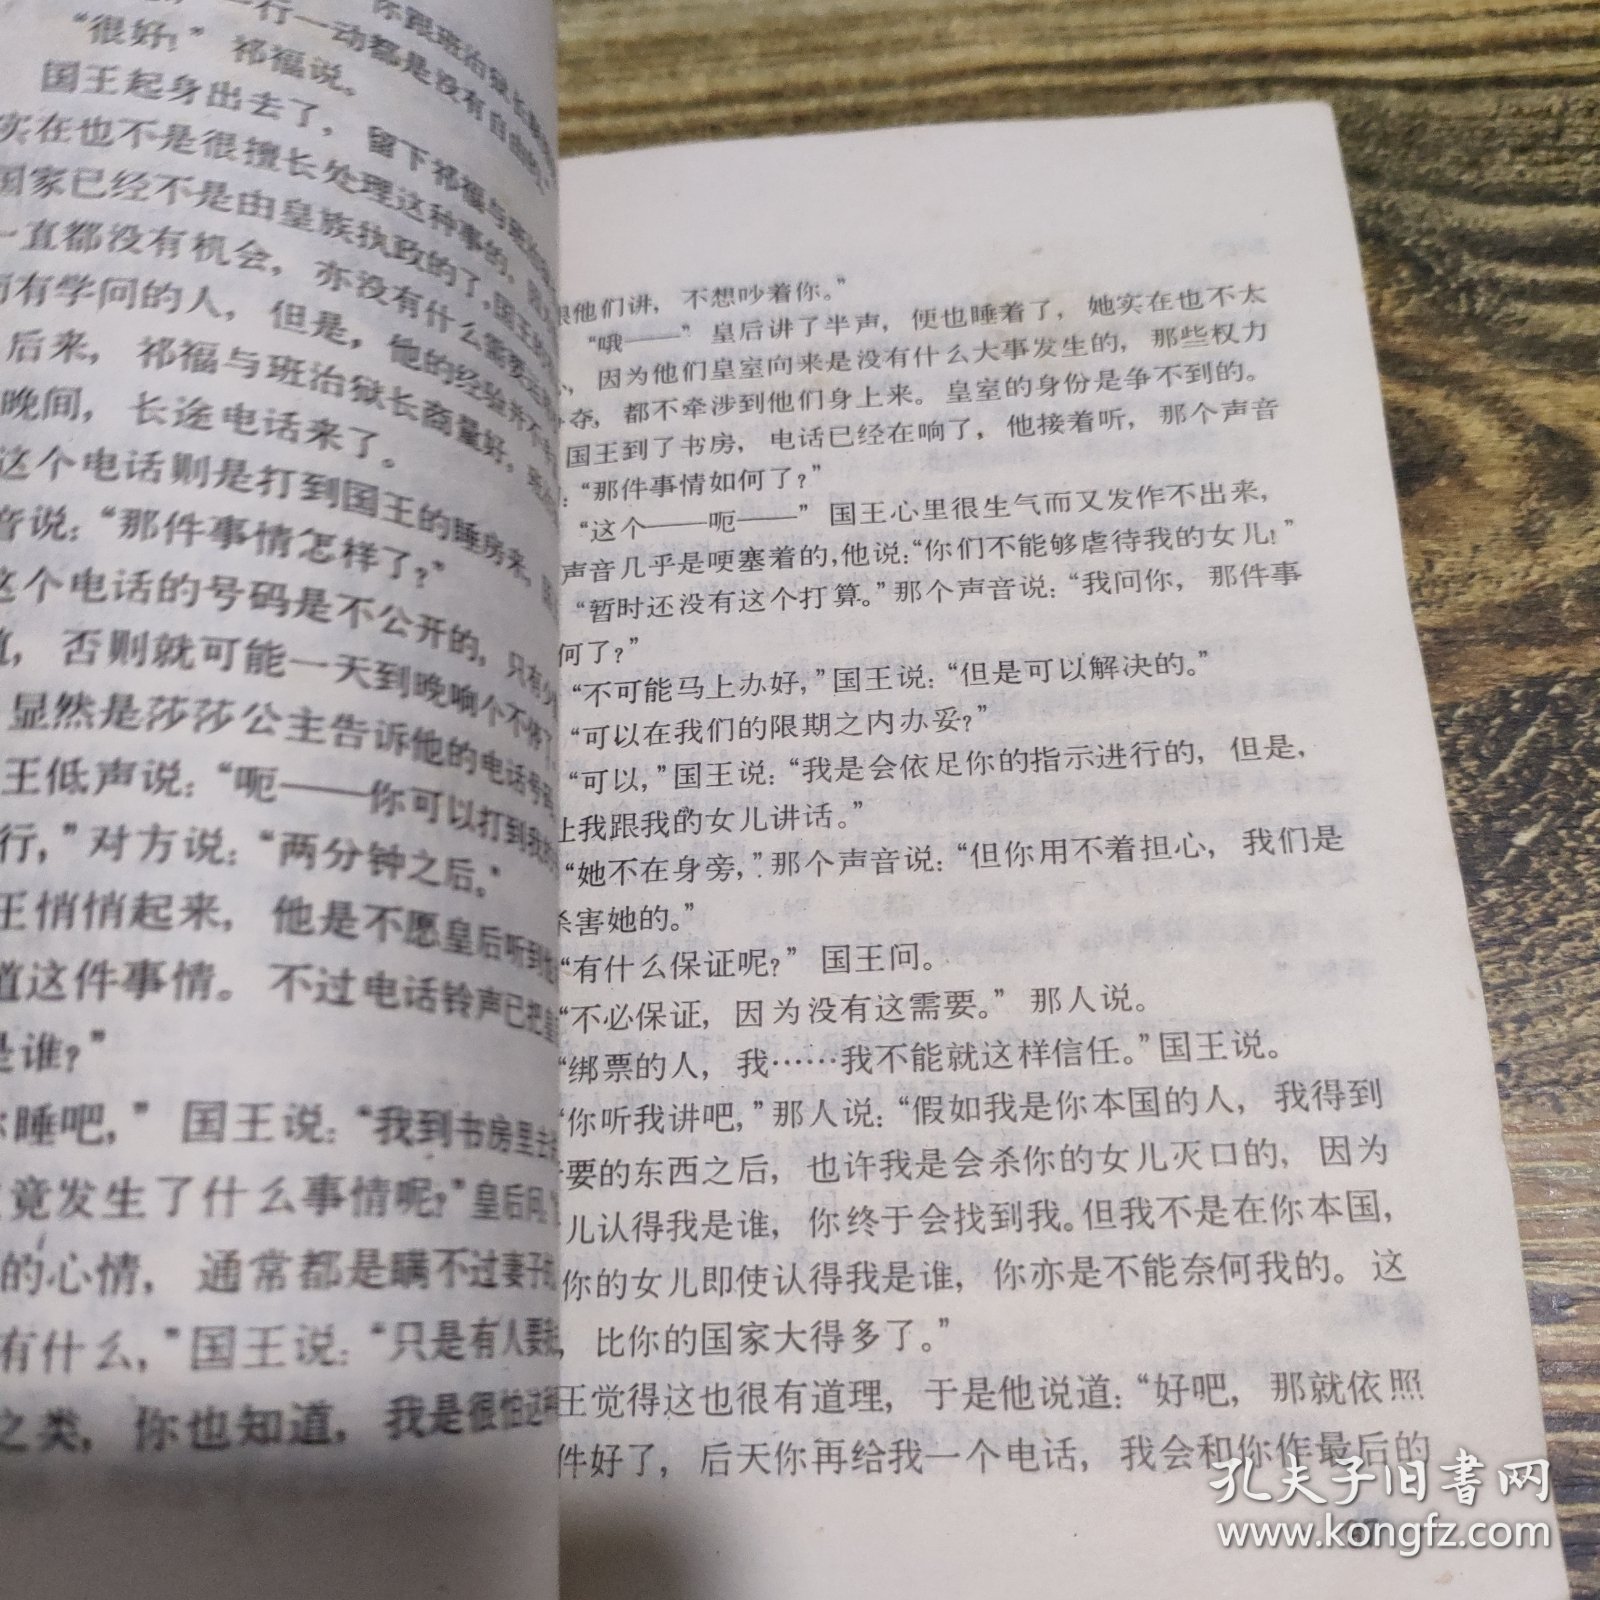 你跟班治狱长
一行一动都是没有自由的
“很好！”祁福说。
国王起身出去了，留下祁福与班治
实在也不是很擅长处理这种事的，因为
国家已经不是由皇族执政的了。国王
一直都没有机会，亦没有什么需要
有学问的人，但是，他的经验并不
后来，祁福与班治狱长商量好，
晚间，长途电话来了。
这个电话则是打到国王的睡房来，
音说：“那件事情怎样了？”
这个电话的号码是不公开的，只有少
，否则就可能一天到晚响个不休了
显然是莎莎公主告诉他的电话号码
王低声说：“呃——你可以打到我的
行，”对方说：“两分钟之后。”
王悄悄起来，他是不愿皇后听到他
道这件事情。不过电话铃声已把皇
是谁？”
睡吧，”国王说：“我到书房里去
竟发生了什么事情呢？”皇后问。
的心情，通常都是瞒不过妻子的
有什么，”国王说：“只是有人要
之类，你也知道，我是很怕这
跟他们讲，不想吵着你。”
“哦——”皇后讲了半声，便也睡着了，她实在也不太
，因为他们皇室向来是没有什么大事发生的，那些权力
夺，都不牵涉到他们身上来。皇室的身份是争不到的。
国王到了书房，电话已经在响了，他接着听，那个声音
：“那件事情如何了？”
“这个——呃——”国王心里很生气而又发作不出来，
声音几乎是哽塞着的，他说：“你们不能够虐待我的女儿！”
“暂时还没有这个打算。”那个声音说：“我问你，那件事
何了？”
“不可能马上办好，”国王说：“但是可以解决的。”
“可以在我们的限期之内办妥？”
“可以，”国王说：“我是会依足你的指示进行的，但是，
让我跟我的女儿讲话。”
“她不在身旁，”那个声音说：“但你用不着担心，我们是
杀害她的。”
“有什么保证呢？”国王问。
“不必保证，因为没有这需要。”那人说。
“绑票的人，我……我不能就这样信任。”国王说。
“你听我讲吧，”那人说：“假如我是你本国的人，我得到
要的东西之后，也许我是会杀你的女儿灭口的，因为
儿认得我是谁，你终于会找到我。但我不是在你本国，
你的女儿即使认得我是谁，你亦是不能奈何我的。这
，比你的国家大得多了。”
王觉得这也很有道理，于是他说道：“好吧，那就依照
件好了，后天你再给我一个电话，我会和你作最后的
孔夫子旧书网
www.kongfz.com